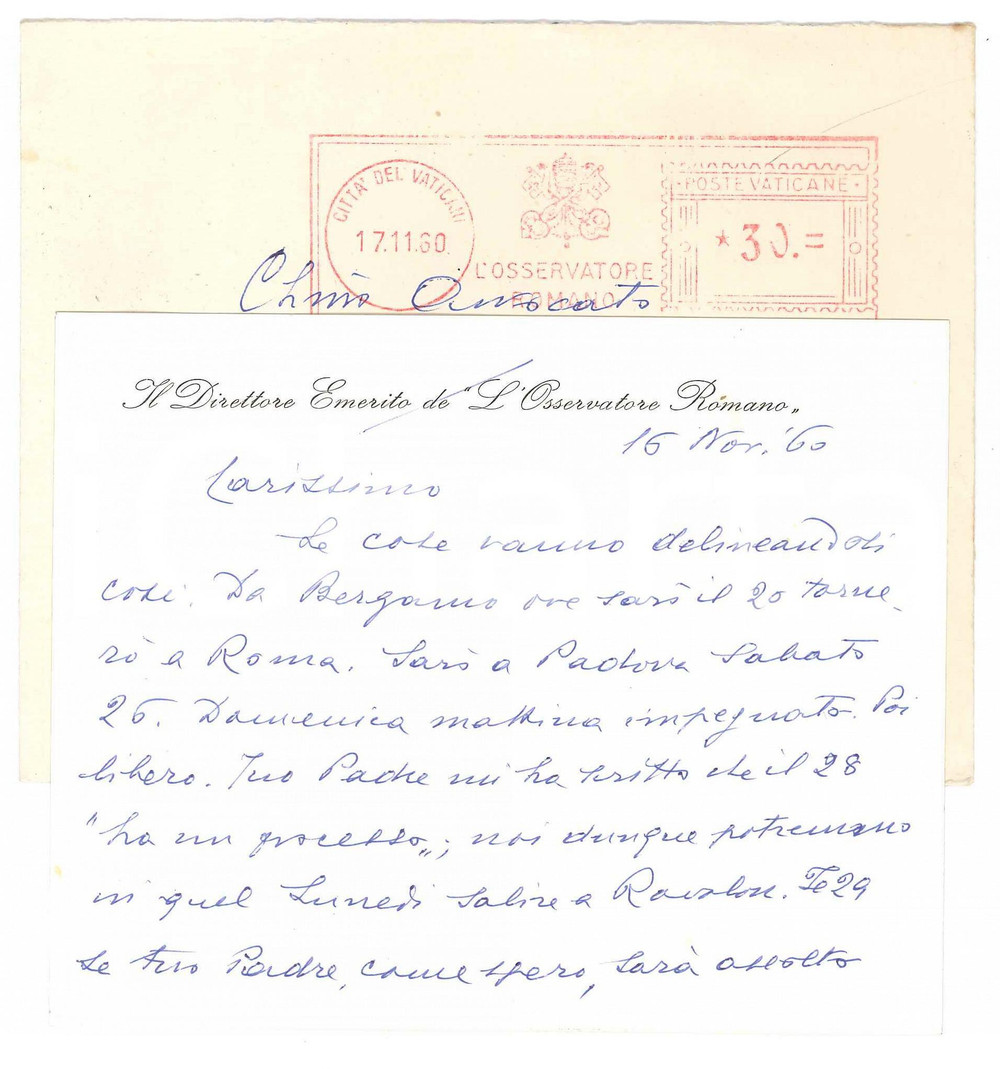 CITTA' DEL VATICANO
17.11.60.
L'OSSERVATORE
ROMANO
POSTE VATICANE
* 30.=
Ch.mo Avvocato
Il Direttore Emerito de "L'Osservatore Romano„
16 Nov. '60
Carissimo
Le cose vanno delineandosi
così. Da Bergamo ove sarò il 20 torne-
rò a Roma. Sarò a Padova Sabato
26. Domenica mattina impegnato. Poi
libero. Tuo Padre mi ha scritto che il 28
"ha un processo„; noi dunque potremmo
in quel Lunedì salire a Rovolon. Il 29
se tuo Padre, come spero, sarà assolto